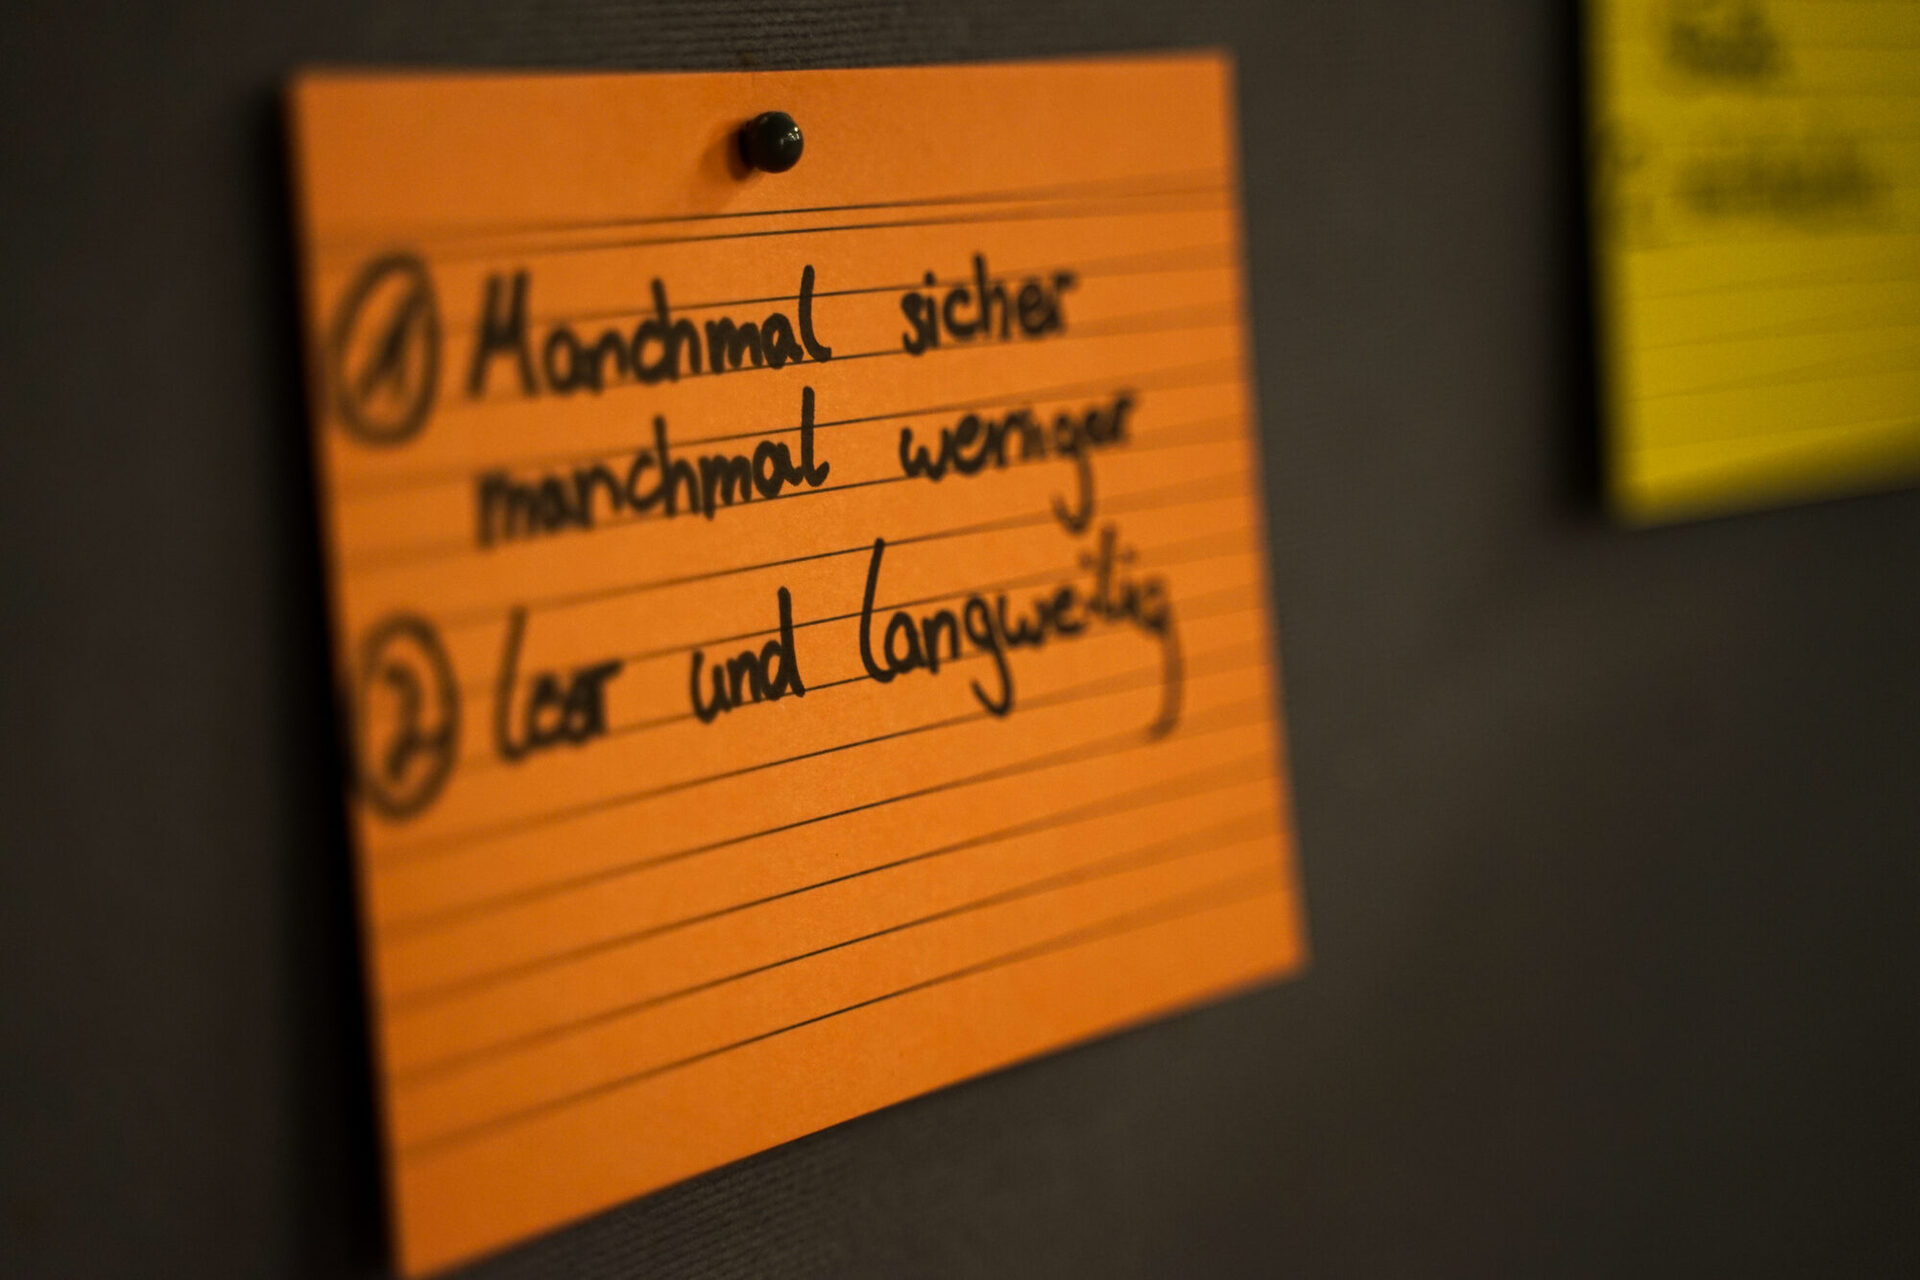 ① Manchmal sicher
manchmal weniger
② Leer und langweilig